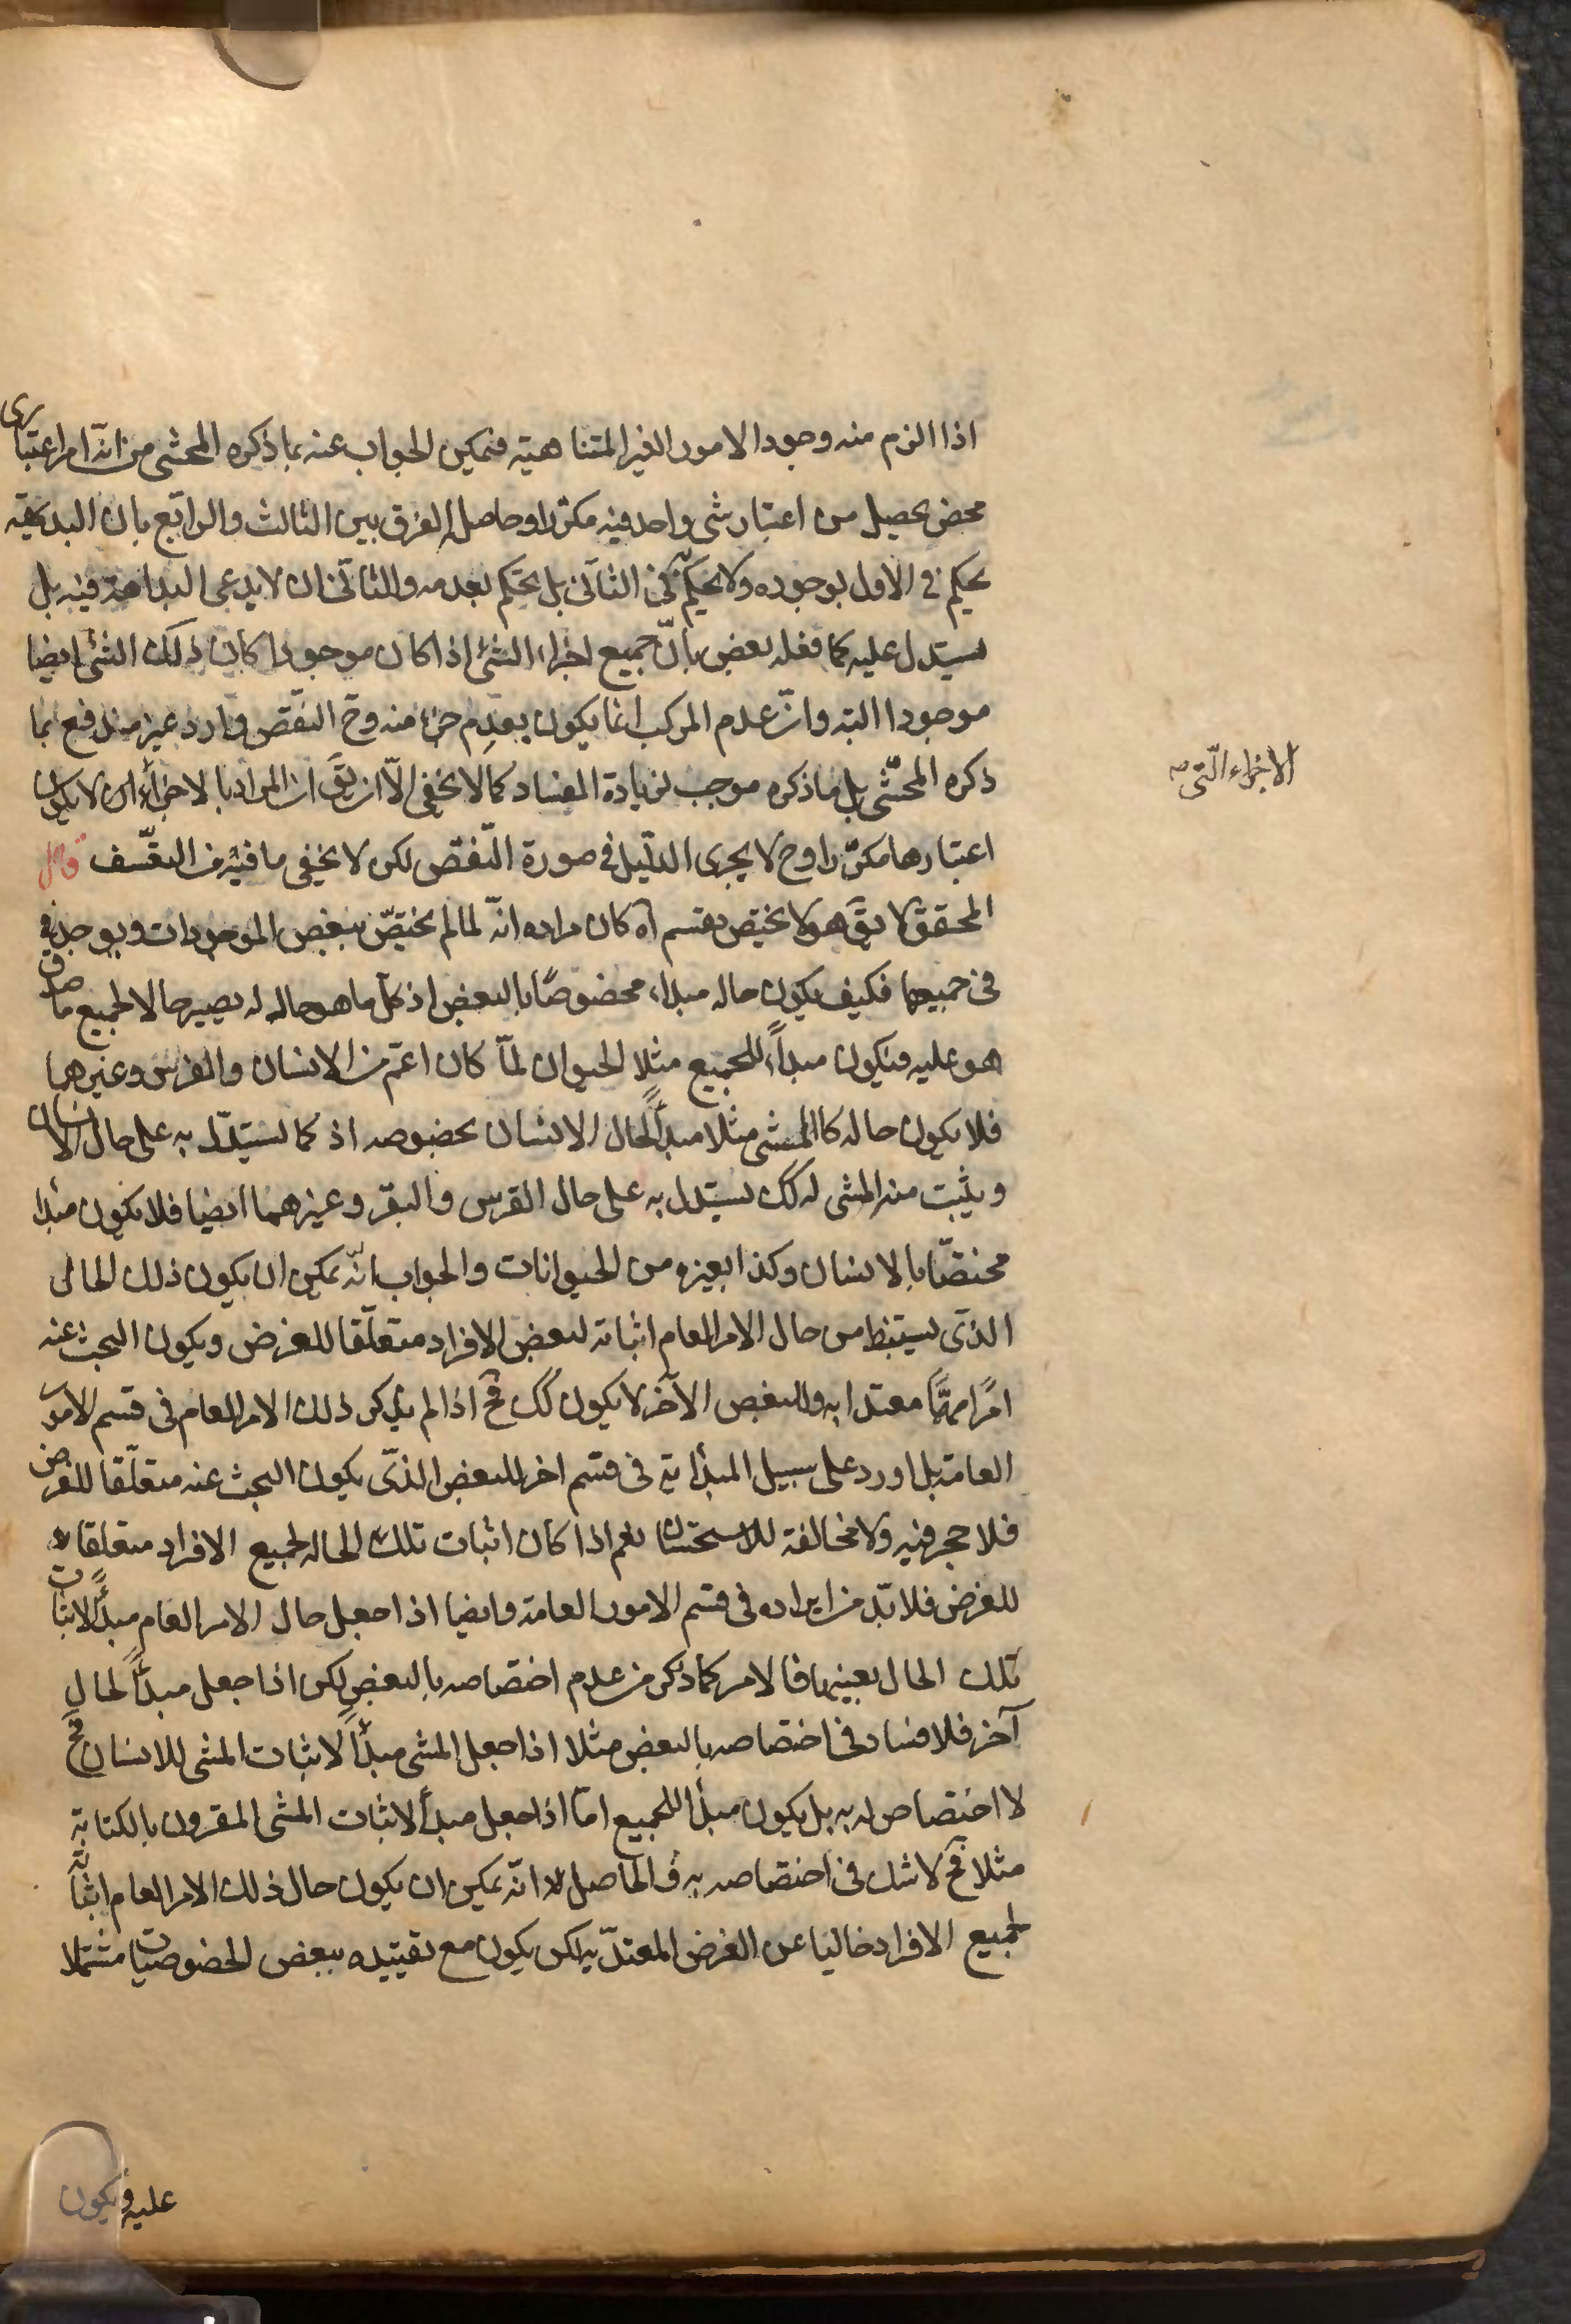 اذا الزم منه وجود الامور الغير المتناهية فيمكن الجواب عنه بما ذكره المحشى من انّه امر اعتبارى
محض يحصل من اعتبار شى واحد فيه مكرّرا وحاصل الفرق بين الثالث والرابع بان البديهة
يحكم فى الاول بوجوده ولا يحكم به فى الثانى بل يحكم بعدمه والثانى ان لا يدعى البداهة فيه بل
يستدل عليه كما فعله بعض بانّ جميع اجزاء الشئ اذا كان موجودا كان ذلك الشئ ايضا
موجودا البته وانّ عدم المركب انما يكون بعدم جزء منه وح النقض وارد غير مندفع بما
ذكره المحشّى بل ما ذكره موجب لزيادة الفساد كما لا يخفى الّا ان يقَ ان المراد بالاجزاء ان لا يكون
الاجزاء الّتى صه
اعتبارها مكرّرا وح لا يجرى الدليل فى صورة النّقض لكن لا يخفى ما فيه من التعسّف قال
المحقق لا يقَ هو لا يختص بقسم آه كان مراده انّه لما لم يختصّ ببعض الموجودات ويوجد فى
فى جميعها فكيف يكون حاله مبداء مخصوصًا بالبعض اذ كلّ ما هو حال له يصير حالا لجميع ما صدق
هو عليه فيكون مبدأً للجميع مثلا الحيوان لمّا كان اعمّ من الانسان والفرس وغيرهما
فلا يكون حاله كالمشى مثلا مبدأً لحال الانسان بخصوصه اذ كما يستدلّ به على حال الانسان
ويثبت منه المشى له كك يستدل به على حال الفرس والبقر وغيرهما ايضا فلا يكون مبدا
مختصّا بالانسان وكذا بغيره من الحيوانات والجواب انّه يمكن ان يكون ذلك الحال
الذى يستنبط من حال الامر العام اثباته لبعض الافراد متعلّقا للغرض ويكون البحث عنه
امرًا مهمًّا معتدا به وللبعض الآخر لا يكون كك فح اذا لم يذكر ذلك الامر العام فى قسم الامور
العامة بل اورد على سبيل المبدائية فى قسم اخر للبعض الذى يكون البحث عنه متعلّقا للغرض
فلا حجر فيه ولا مخالفة للاستحسان نعم اذا كان اثبات تلك الحاله لجميع الافراد متعلقا
للغرض فلا بّد من ايراده فى قسم الامور العامة وايضا اذا جعل حال الامر العام مبدأً لاثبات
تلك الحال بعينها فالامر كما ذكر من عدم اختصاصه بالبعض لكن اذا جعل مبدأً لحال
آخر فلا فساد فى اختصاصه بالبعض مثلا اذا جعل المشى مبدأً لاثبات المشى للانسان فح
لا اختصاص له به بل يكون مبدأ للجميع امّا اذا جعل مبدأ لاثبات المشى المقرون بالكتابة
مثلا فح لا شك فى اختصاصه به فالحاصل انّه يمكن ان يكون حال ذلك الامر العام اثباته
لجميع الافراد خاليا عن الغرض المعتدّ به لكن يكون مع تقييده ببعض الخصوصيات مشتملا
عليه ويكون